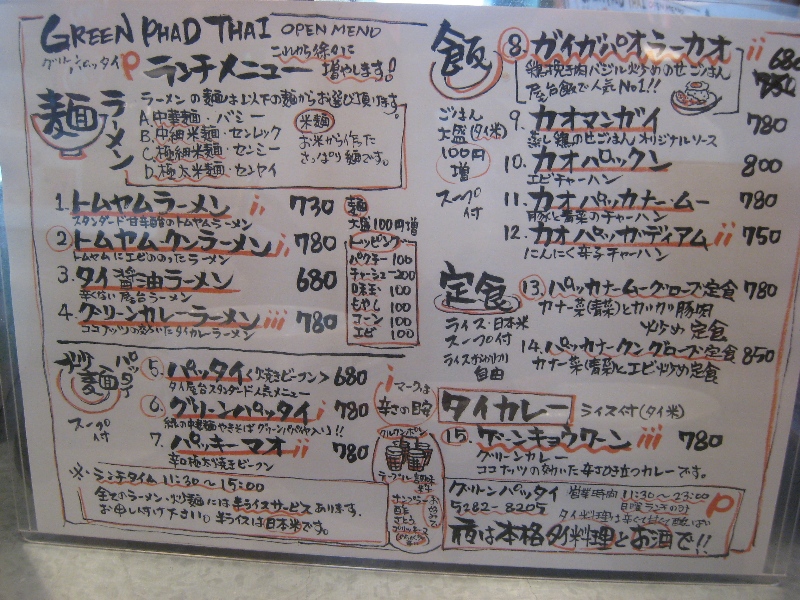 GREEN PHAD THAI OPEN MENU
グリーンパッタイ P ランチメニュー
これから徐々に
増やします!
麺 ラーメン
ラーメンの麺は以下の麺からお選び頂けます。
A.中華麺・バミー
B.中細米麺・センレック
C.極細米麺・センミー
D.極太米麺・センヤイ
米麺
お米から作った
さっぱり麺です。
1.トムヤムラーメン 730
スタンダード甘辛酸のトムヤムラーメン
2.トムヤムクンラーメン 780
トムヤムにエビののったラーメン
3.タイ醤油ラーメン 680
辛くない屋台ラーメン
4.グリーンカレーラーメン iii 780
ココナッツの タイカレーラーメン
麺
大盛100円増
トッピング
パクチー 100
チャーシュー 200
味玉 100
もやし 100
コーン 100
エビ 100
炒麺 パッタイ
スープ付
5.パッタイ<焼きビーフン> 680
タイ屋台スタンダード人気メニュー
6.グリーンパッタイ i 780
緑の中華麺やきそばグリーンパパイヤ入り!!
7.パッキーマオ ii 780
辛口極太焼きビーフン
i マークは
辛さの目安
クルワンポン
テーブル調味料
ナンプラー
酢
さとう
※・ランチタイム 11:30〜15:00
全てのラーメン・炒麺には半ライスサービスあります。
お申し付け下さい。半ライスは日本米です。
飯
ごはん
大盛(タイ米)
100円
増
スープ
付
8.ガイガパオラーカオ ii 680
鶏挽き肉バジル炒めのせごはん
屋台飯で人気No1!!
9.カオマンガイ 780
蒸し鶏のせごはん オリジナルソース
10.カオパックン 800
エビチャーハン
11.カオパッカナームー 780
豚と青菜のチャーハン
12.カオパッカディアム ii 750
にんにく辛子チャーハン
定食
ライス・日本米
スープ付
ライスおかわり
自由
13.パッカナームーグローブ定食 780
カナー菜(青菜)とカリカリ豚肉
炒め定食
14.パッカナークングローブ定食 850
カナー菜(青菜)とエビ炒め定食
タイカレー ライス付(タイ米)
15.グリーンキョウワーン iii 780
グリーンカレー
ココナッツの効いた辛さ引き立つカレーです。
グリーンパッタイ 営業時間 11:30〜23:00
5282-8205 日曜ランチのみ P
タイ料理は辛く甘く酸っぱい
夜は本格タイ料理とお酒で!!